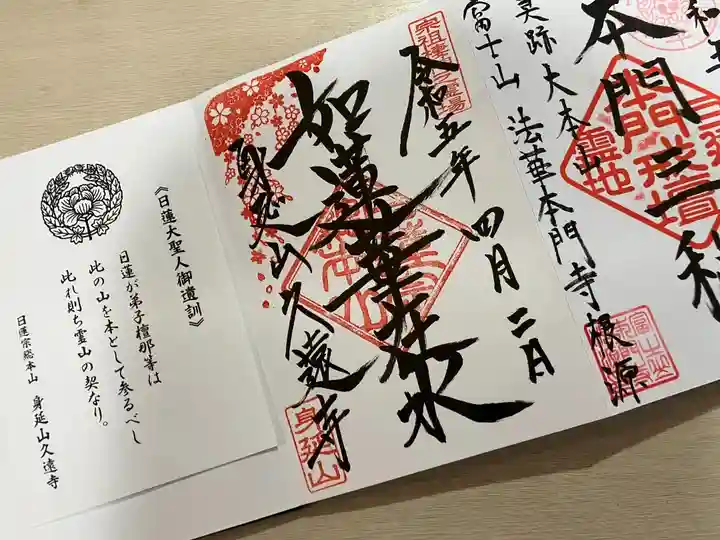 本門三
大本山
富士山 法華本門寺根源
霊地
令和五年四月二日
宗祖棲神之霊場
如蓮華在水
身延山久遠寺
身延山
《日蓮大聖人御遺訓》
日蓮が弟子檀那等は
此の山を本として参るべし
此れ則ち霊山の契なり。
日蓮宗総本山 身延山久遠寺